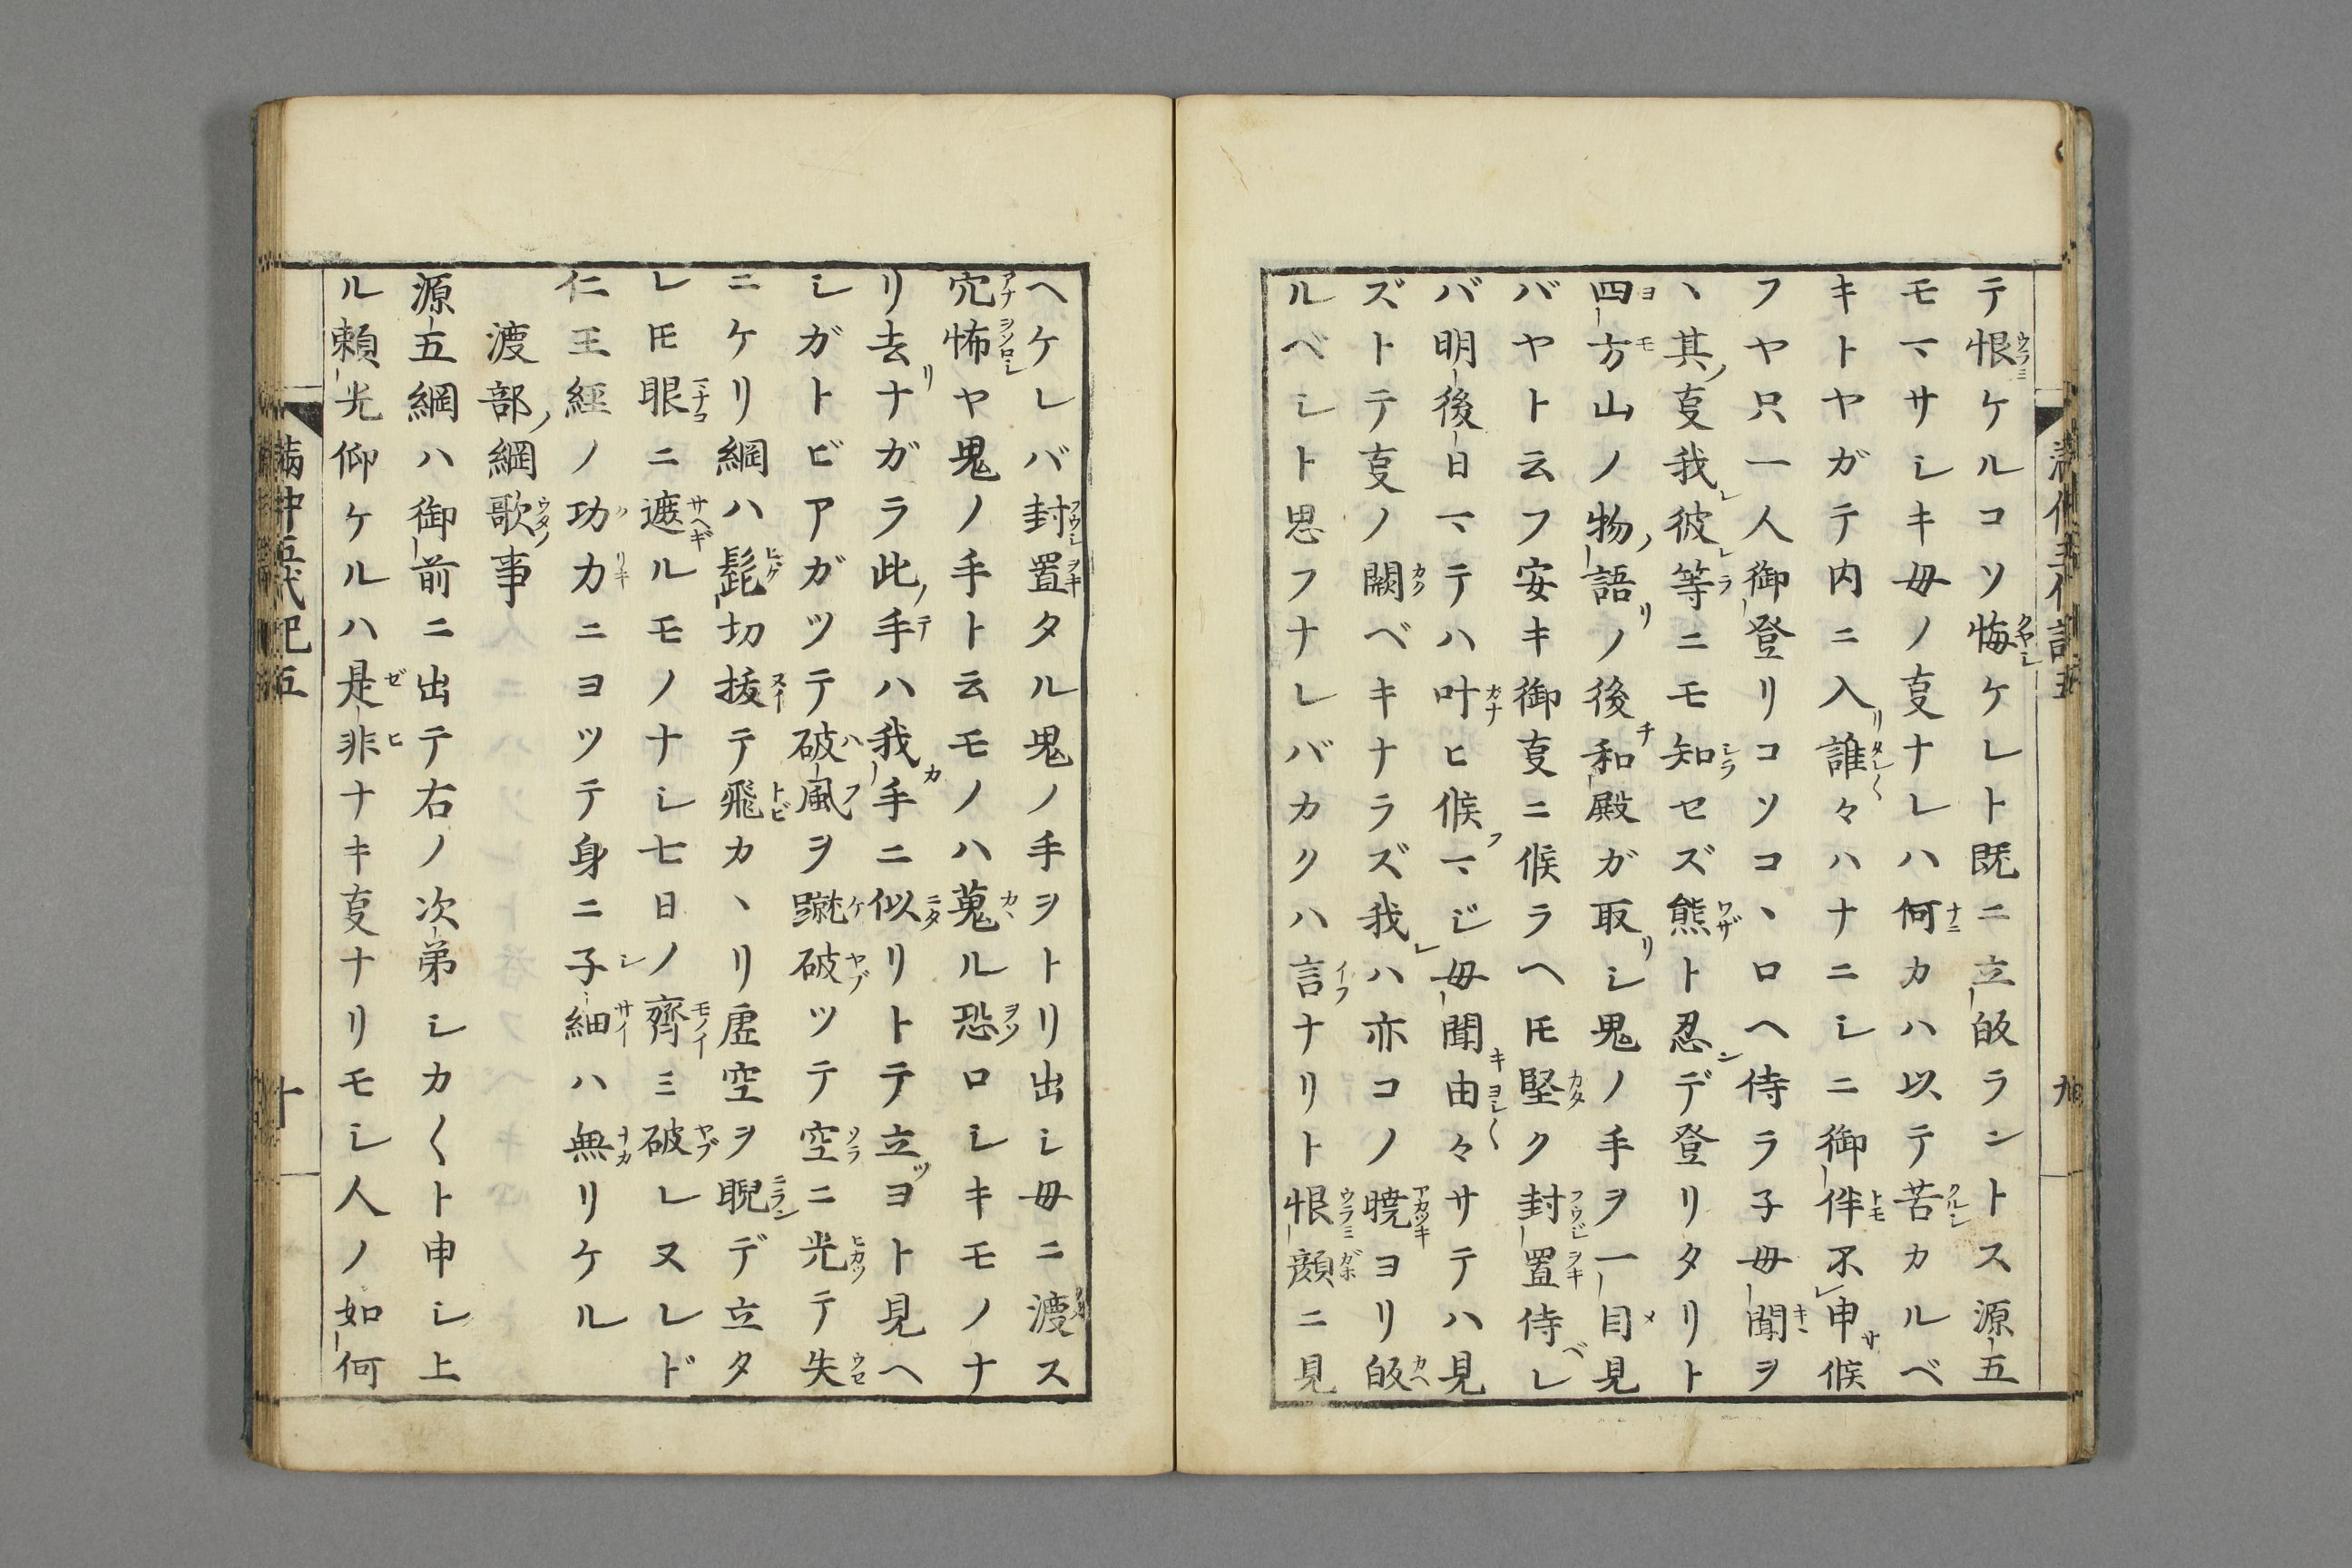 テ恨ケルコソ悔ケレト既ニ立皈ラントス源五
モマサシキ毋ノ亊ナレハ何カハ以テ苦カルベ
キトヤガテ内ニ入誰々ハナニシニ御伴不申候
フヤ只一人御登リコソコヽロヘ侍ラ子毋聞ヲ
ヽ其亊我彼等ニモ知セズ熊ト忍デ登リタリト
四方山ノ物語ノ後和殿ガ取シ鬼ノ手ヲ一目見
バヤト云フ安キ御亊ニ候ラヘ𪜈堅ク封置侍レ
バ明後日マテハ叶ヒ候マジ毋聞由々サテハ見
ズトテ亊ノ闕ベキナラズ我ハ亦コノ暁ヨリ皈
ルベシト思フナレバカクハ言ナリト恨顔ニ見
ヘケレバ封置タル鬼ノ手ヲトリ出シ毋ニ渡ス
穴怖ヤ鬼ノ手ト云モノハ蒐ル恐ロシキモノナ
リ去ナガラ此手ハ我手ニ似リトテ立ヨト見ヘ
シガトビアガツテ破風ヲ蹴破ツテ空ニ光テ失
ニケリ綱ハ髭切抜テ飛カヽリ虚空ヲ睨デ立タ
レ𪜈眼ニ遮ルモノナシ七日ノ齊ミ破レヌレド
仁王經ノ功力ニヨツテ身ニ子細ハ無リケル
渡部綱歌事
源五綱ハ御前ニ出テ右ノ次弟シカ〱ト申シ上
ル頼光仰ケルハ是非ナキ亊ナリモシ人ノ如何